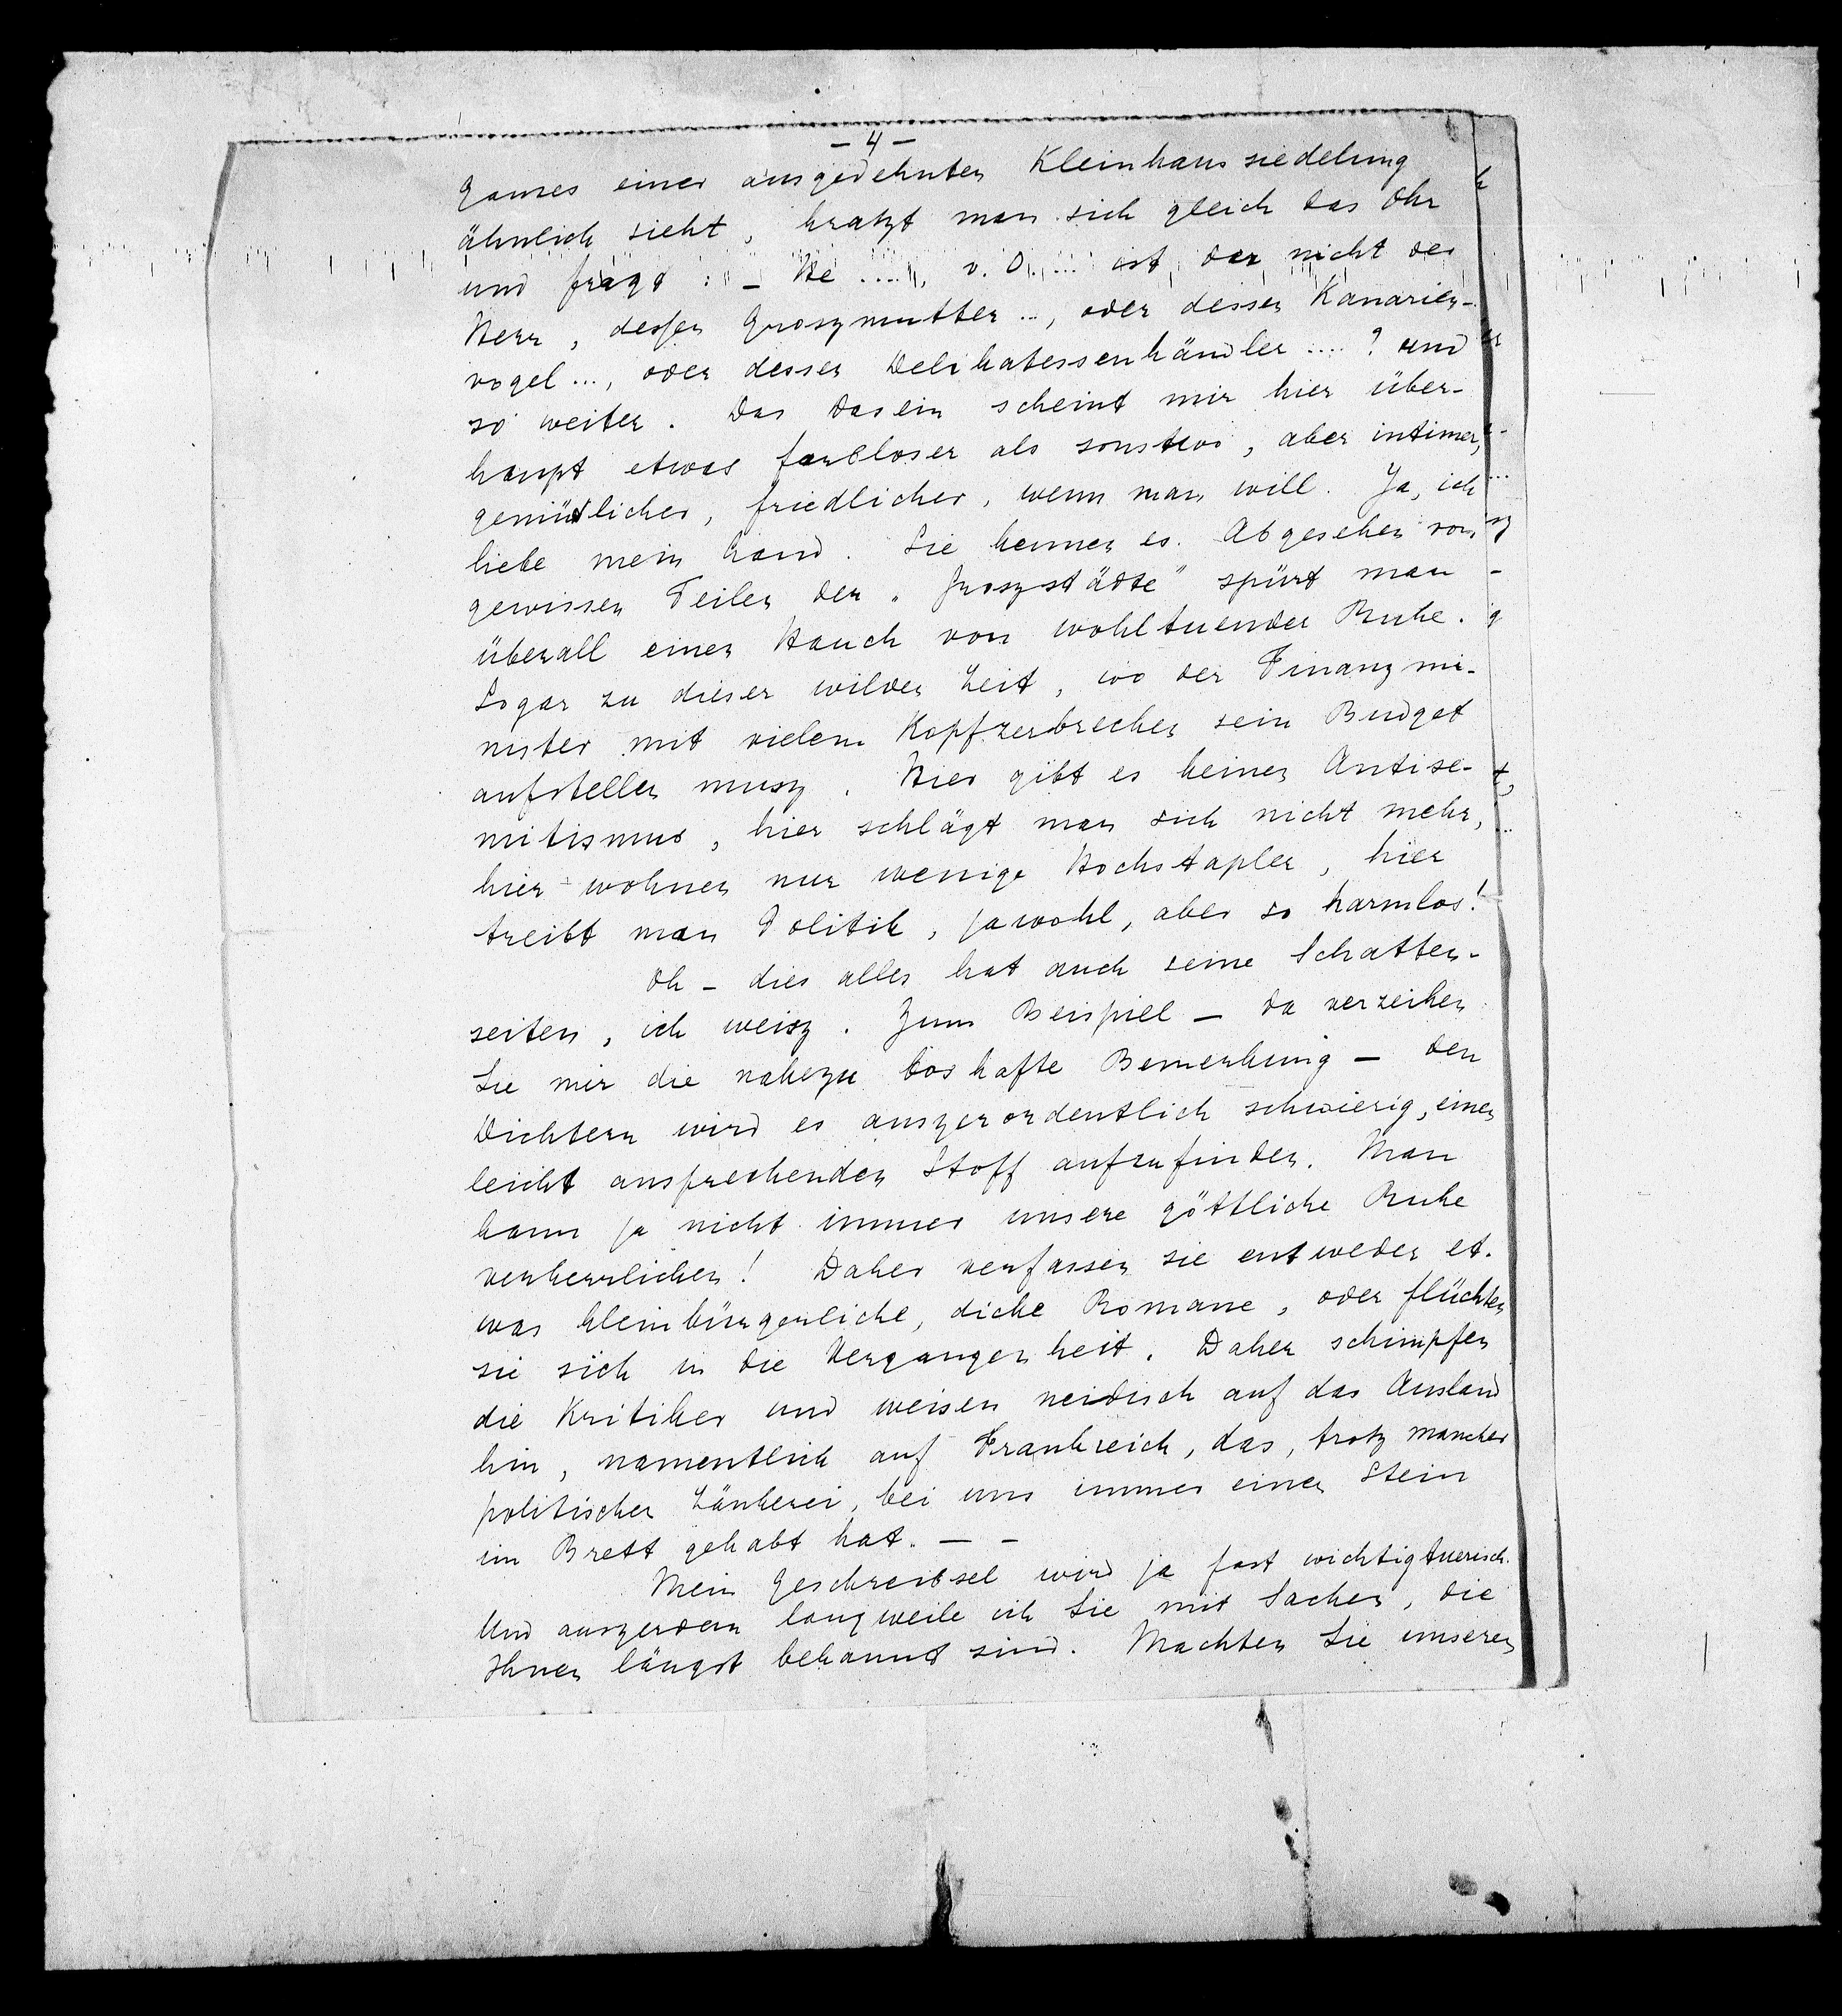 - 4 -
Ganzes einer ausgedehnten Kleinhaussiedelung
ähnlich sieht, kratzt man sich gleich das Ohr
und fragt : - He ...., v. D..... ist der nicht der
Herr, dessen Groszmutter ..., oder dessen Kanarien-
vogel ..., oder dessen Delikatessenhändler .... ? und
so weiter. Das Dasein scheint mir hier über-
haupt etwas farbloser als sonstwo, aber intimer,
gemütlicher, friedlicher, wenn man will. Ja, ich
liebe mein Land. Sie kennen es. Abgesehen von
gewissen Teilen der „Groszstädte" spürt man
überall einen Hauch von wohltuender Ruhe.
Sogar zu dieser wilden Zeit, wo der Finanzmi-
nister mit vielem Kopfzerbrechen sein Budget
aufstellen musz. Hier gibt es keinen Antise-
mitismus, hier schlägt man sich nicht mehr,
hier wohnen nur wenige Hochstapler, hier
treibt man Politik, jawohl, aber so harmlos!
Oh - dies alles hat auch seine Schatten-
seiten, ich weisz. Zum Beispiel - da verzeihen
Sie mir die nahezu boshafte Bemerkung - den
Dichtern wird es auszerordentlich schwierig, einen
leicht ansprechenden Stoff aufzufinden. Man
kann ja nicht immer unsere göttliche Ruhe
verherrlichen! Daher verfassen sie entweder et-
was kleinbürgerliche, dicke Romane, oder flüchten
sie sich in die Vergangenheit. Daher schimpfen
die Kritiker und weisen neidisch auf das Ausland
hin, namentlich auf Frankreich, das, trotz mancher
politischen Zänkerei, bei uns immer einen Stein
im Brett gehabt hat. - -
Mein Geschreibsel wird ja fast wichtigtuerisch.
Und auszerdem langweile ich Sie mit Sachen, die
Ihnen längst bekannt sind. Machten Sie unseren